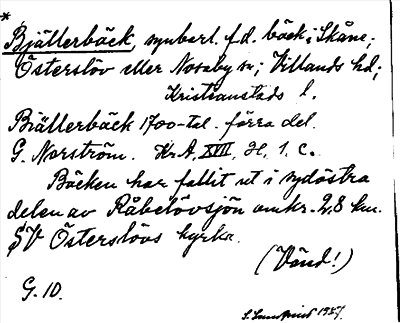 *
Bjällerbäck, synbarl. f.d. bäck i Skåne;
Österslöv eller Nosaby sn; Villands hd;
Kristianstads l.
Biällerbäck 1700-tal. förra del.
G. Norström. Kr. A. XVII, H, 1, c.
Bäcken har fallit ut i sydöstra
delen av Råbelövsjön omkr. 2,8 km.
SV Österslövs kyrka.
(Vänd!)
G. 10.
1937.